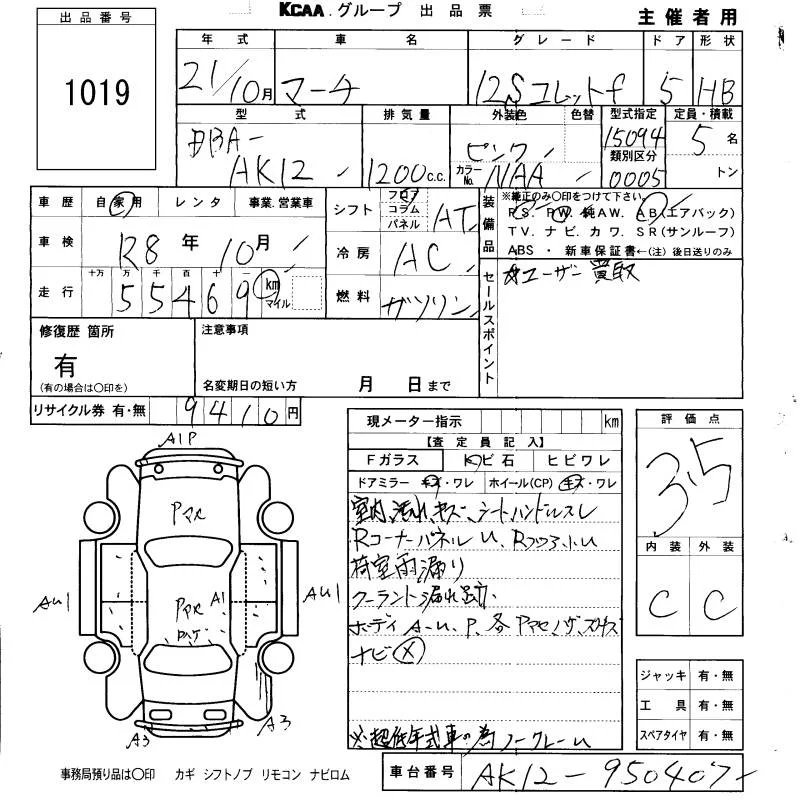 KCAA.グループ 出品票
主催者用
出品番号
1019
年式 車名 グレード ドア 形状
21/10月 マーチ 12Sコレットf 5 HB
型式 排気量 外装色 色替 型式指定 定員・積載
DBA-
AK12 1200c.c. ピンク 15094 5名
カラーNo. NAA 類別区分 0005 トン
車歴 自家用 レンタ 事業.営業車
車検 R8年10月
十万 万 千 百 十 一
走行 55469 km マイル
シフト フロア コラム パネル AT
冷房 AC
燃料 ガソリン
装備品 ※純正のみ〇印をつけて下さい
P.S. P.W. 純AW. A.B(エアバック)
T.V. ナビ. カワ. S.R(サンルーフ)
ABS ・ 新車保証書←(注) 後日送りのみ
セールスポイント
☆ユーザー買取
修復歴 箇所
有
(有の場合は〇印を)
注意事項
名変期日の短い方 月 日まで
リサイクル券 有・無 9410円
現メーター指示 km
【査定員記入】
Fガラス 飛ビ石 ヒビワレ
ドアミラー キズ・ワレ ホイール(CP) キズ・ワレ
室内汚れ、キズ、シートハンドルスレ
RコーナーパネルU、Rフロア小U
荷室雨漏り
クーラント漏れ跡
ボディA-U、P、各
ナビ(X)
※超低年式車の為ノークレーム
評価点
3.5
内装 外装
C C
ジャッキ 有・無
工具 有・無
スペアタイヤ 有・無
A1P
AU1
AU1
A1
A3
A3
事務局預り品は〇印 カギ シフトノブ リモコン ナビロム
車台番号 AK12-950407